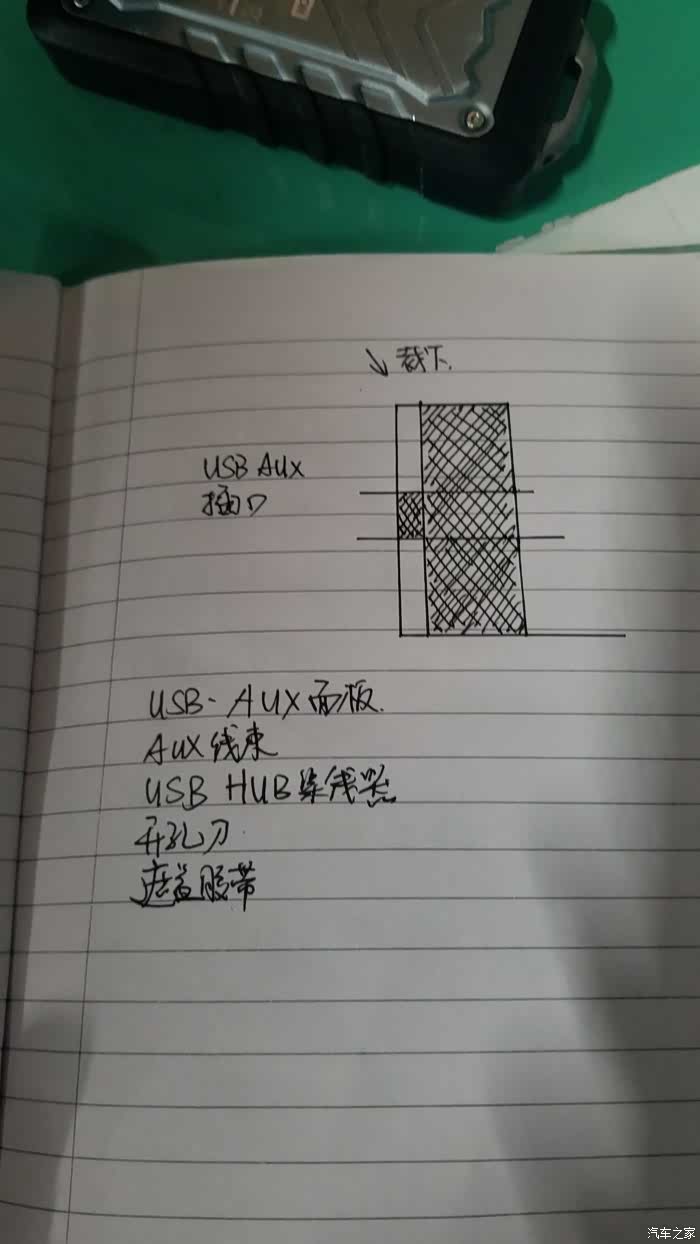 裁下.
USB AUX
插口
USB-AUX面板.
AUX线束
USB HUB集线器
开孔刀
遮盖胶带
汽车之家